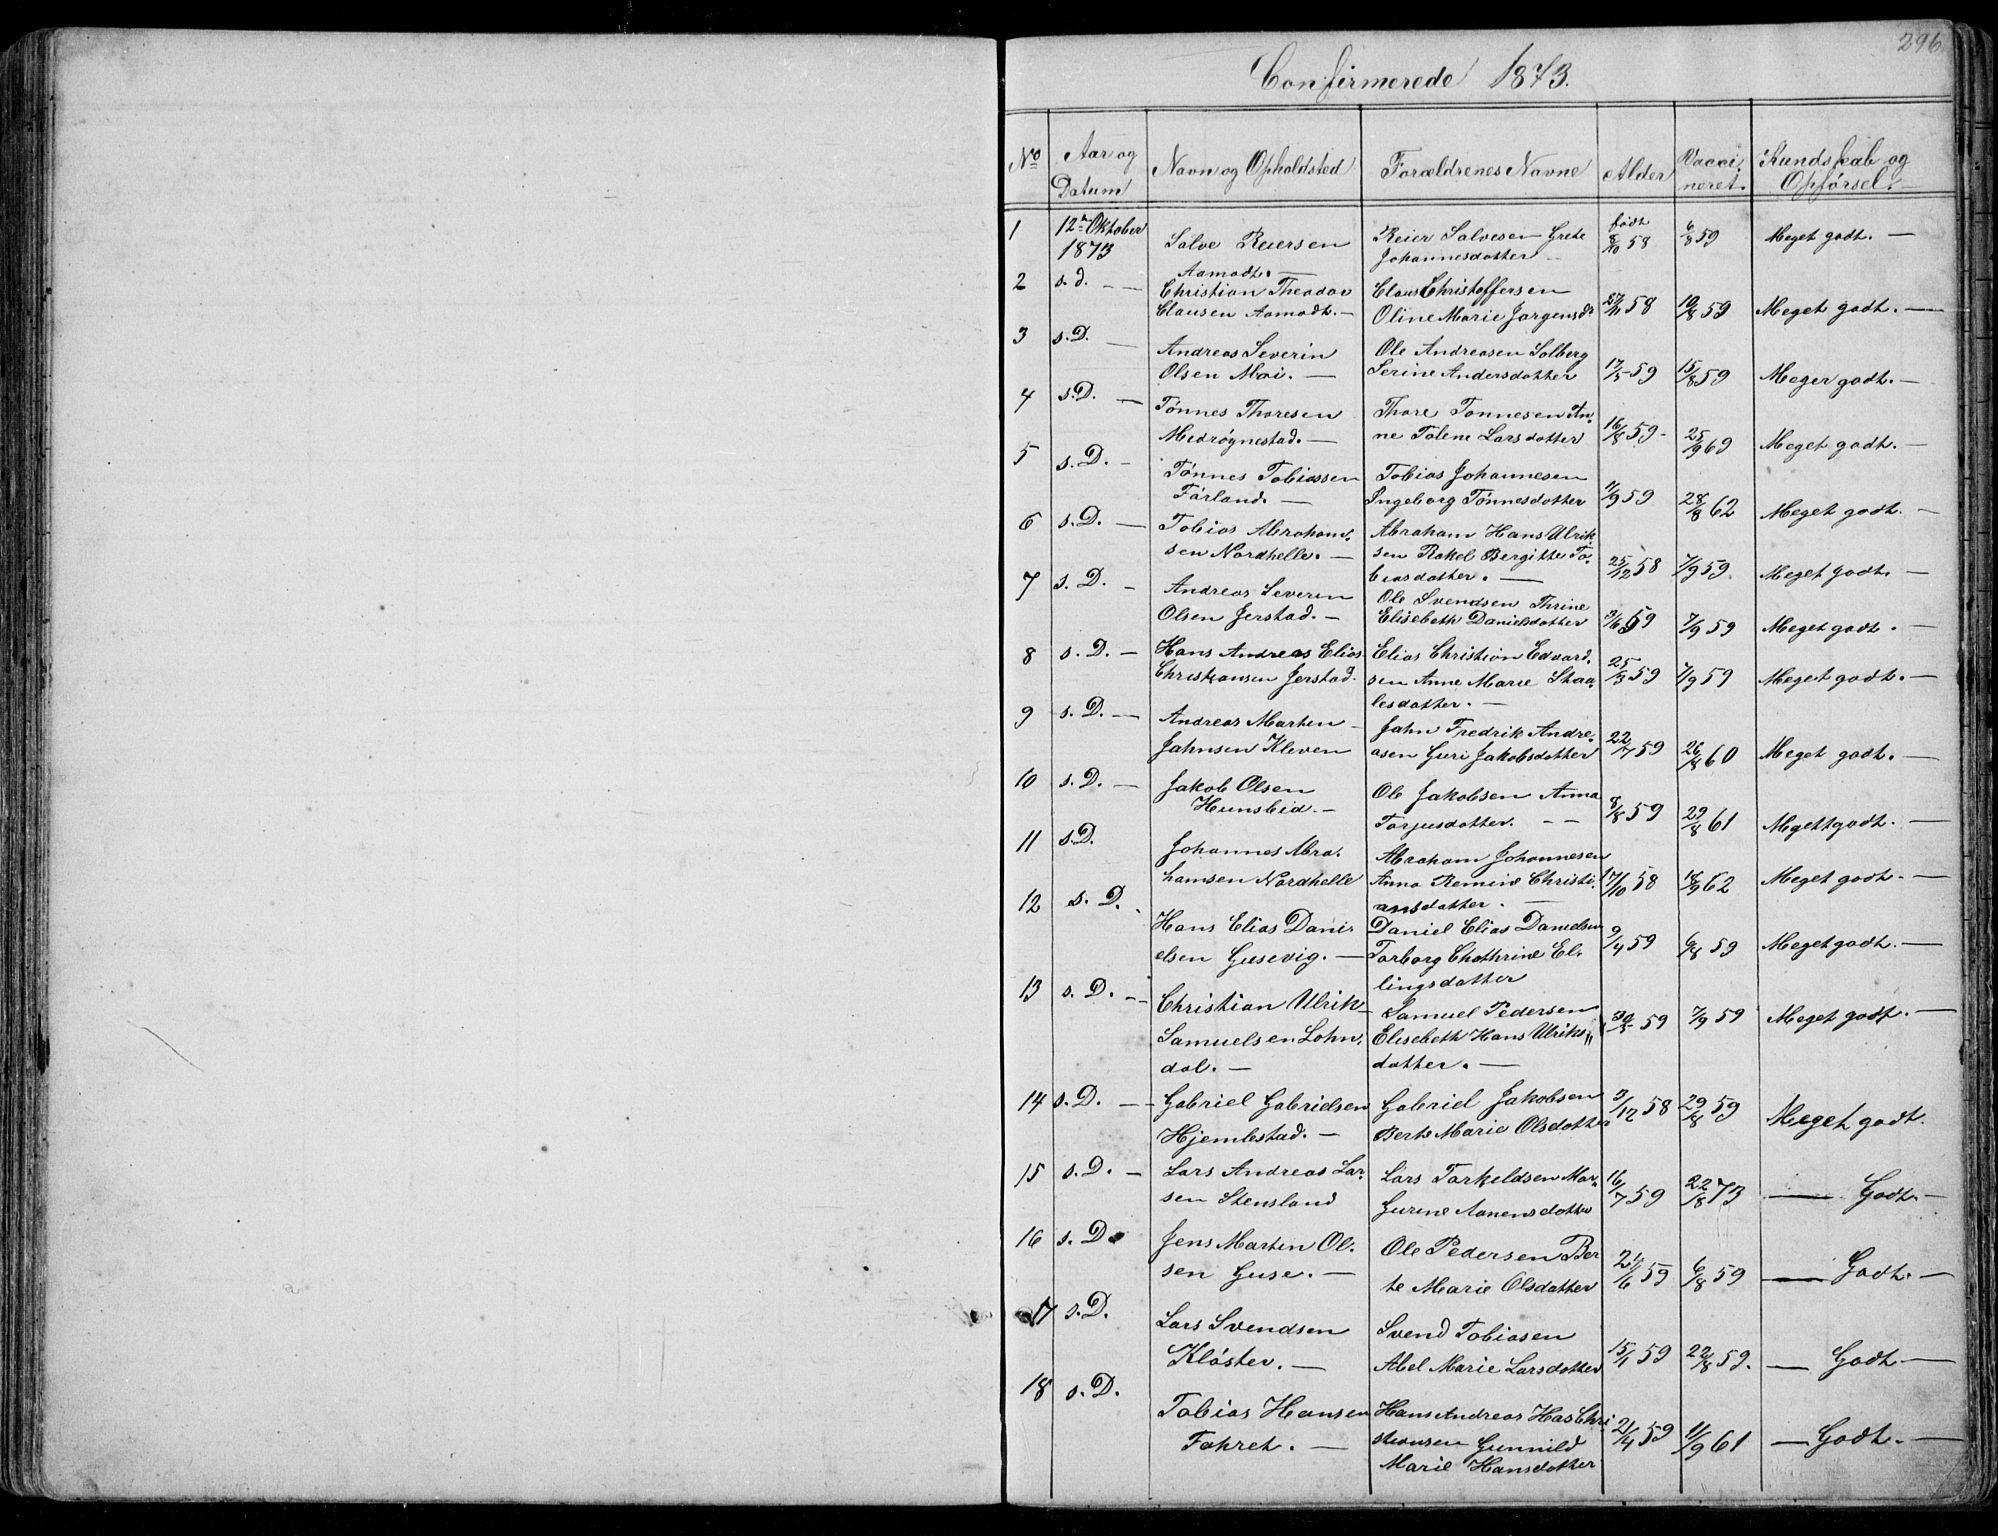 296
Confirmerede 1873.
No
Aar og Datum
Navn og Opholdsted
Forældrenes Navne
Alder
Vacci neret.
Kundskab og Opførsel.
1 12te Oktober 1873 Salve Reiersen Aamodt. — Reier Salvesen Grete Johannesdotter — født 8/10 58 6/8 59 Meget godt. —
2 s. d. — — Christian Theodor Clausen Aamodt. — Claus Christoffersen Oline Marie Jørgensdr 27/11 58 10/8 59 Meget godt. —
3 s. D. — Andreas Severin Olsen Moi. — Ole Andreasen Solberg Serine Andersdotter 17/5 59 15/8 59 Meger godt. —
4 s. D. — Tønnes Thoresen Midrøgnestad. — Thore Tonnesen An- ne Tolene Larsdotter 16/8 59 - 25/9 69 Meget godt. —
5 s. D. — Tønnes Tobiassen Førland. — Tobias Johannesen Ingeborg Tønnesdotter 11/9 59 28/8 62 Meget godt. —
6 s. D. — Tobias Abraham- sen Nordhelle. — Abraham Hans Ulrik sen Rakel Bergitte To- biasdotter. — 25/12 58 7/9 59. Meget godt. —
7 s. D. — Andreas Severin Olsen Jerstad. — Ole Svendsen Thrine Elisebeth Danielsdotter 3/6 59 7/9 59 Meget godt. —
8 s. D. — Hans Andreas Elias Christiansen Jerstad. Elias Christian Edvard- sen Anne Marie Staa- lesdotter. — 25/3 59 7/9 59 Meget godt. —
9 s. D. — Andreas Martin — Jahnsen Kleven Jahn Fredrik Andre- asen Guri Jakobsdotter 22/7 59 26/8 60 Meget godt. —
10 s. D. — Jakob Olsen Hunsbid. — Ole Jakobsen Anna Torjusdotter. — — 8/8 59 29/8 61 Megettgodt. —
11 s. D. Johannes Abra- hamsen Nordhelle Abraham Johannesen Anna Remine Christi- ansdotter. — 17/10 58 18/9 62 Meget godt. —
12 s. D. Hans Elias Dani- elsen Gusevig. — Daniel Elias Danielsen Torborg Chathrine El- lingsdotter 9/4 59 6/8 59 Meget godt. —
13 s. D. — Christian Ulrik Samuelsen Lohn- dal. — Samuel Pedersen Elisebeth Hans Ulriks" dotter. — 30/5 59 7/9 59 Meget godt. —
14 s. D. — Gabriel Gabrielsen Hjemlestad. — Gabriel Jakobsen Berte Marie Olsdotter 3/12 58 29/8 59 Meget godt.
15 s. D. — Lars Andreas Lar- sen Stensland Lars Torkeldsen Mar- Gurine Aanensdotter 16/7 59 22/8 73 — Godt. —
16 s. D. Jens Martin Ol- sen Guse. — Ole Pedersen Ber te Marie Olsdotter 21/6 59 6/8 59 — Godt. —
17 s. D. Lars Svendsen Kloster. — Svend Tobiasen Abel Marie Larsdotter 15/1 59 22/8 59. — Godt. —
18 s. D. Tobias Hansen Fahret. — Hans Andreas Has Chri stiansen Gunnild Marie Hansdotter 21/4 59 11/9 61 — Godt. —